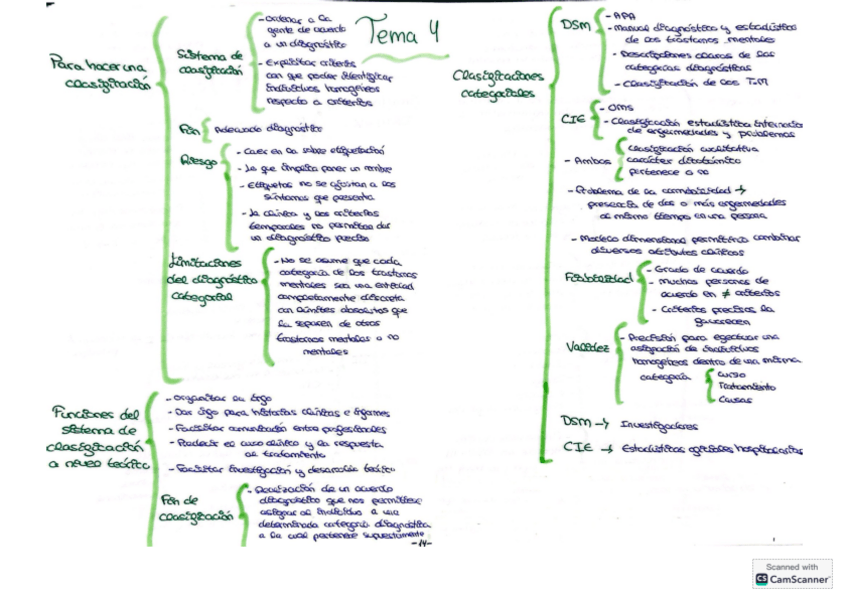 Tema 4
Para hacer una
clasificación
Sistema de
clasificación
- Ordenar a la
gente de acuerdo
a un diagnóstico
- Explicitar criterios
con que poder identificar
individuos homogéneos
respecto a criterios
Fin
Adecuado diagnóstico
Riesgo
- Caer en la sobre etiquetación
- Lo que implica poner un nombre
- Etiquetas no se ajustan a los
síntomas que presenta
- La clínica y los criterios
temporales no permiten dar
un diagnóstico preciso
Limitaciones
del diagnóstico
categorial
- No se asume que cada
categoría de los trastornos
mentales sea una entidad
completamente discreta
con límites absolutos que
la separen de otros
trastornos mentales o no
mentales
Funciones del
sistema de
clasificación
a nivel teórico
- Organizar la info
- Dar info para historias clínicas e informes
- Facilitar comunicación entre profesionales
- Predecir el curso clínico y la respuesta
al tratamiento
- Facilitar investigación y desarrollo teórico
Fin de
clasificación
- Realización de un acuerdo
diagnóstico que nos permitiese
asignar al individuo a una
determinada categoría diagnóstica
a la cual pertenece supuestamente
-14-
Clasificaciones
categoriales
DSM
- APA
- Manual diagnóstico y estadístico
de los trastornos mentales
- Descripciones claras de las
categorías diagnósticas
- Clasificación de los T.M
CIE
- OMS
- Clasificación estadística internacio
de enfermedades y problemas
- Ambos
clasificación cualitativa
carácter dicotómico
pertenece o no
- Problema de la comorbilidad →
presencia de dos o más enfermedades
al mismo tiempo en una persona
- Modelo dimensional permitiría combinar
diversos atributos clínicos
Fiabilidad
- Grado de acuerdo
- Muchas personas de
acuerdo en ≠ criterios
- Criterios precisos la
favorecen
Validez
- Precisión para efectuar una
asignación de individuos
homogéneos dentro de una misma
categoría
Curso
Tratamiento
Causas
DSM → Investigadores
CIE → Estadísticas oficiales hospitalarias
Scanned with
CS CamScanner